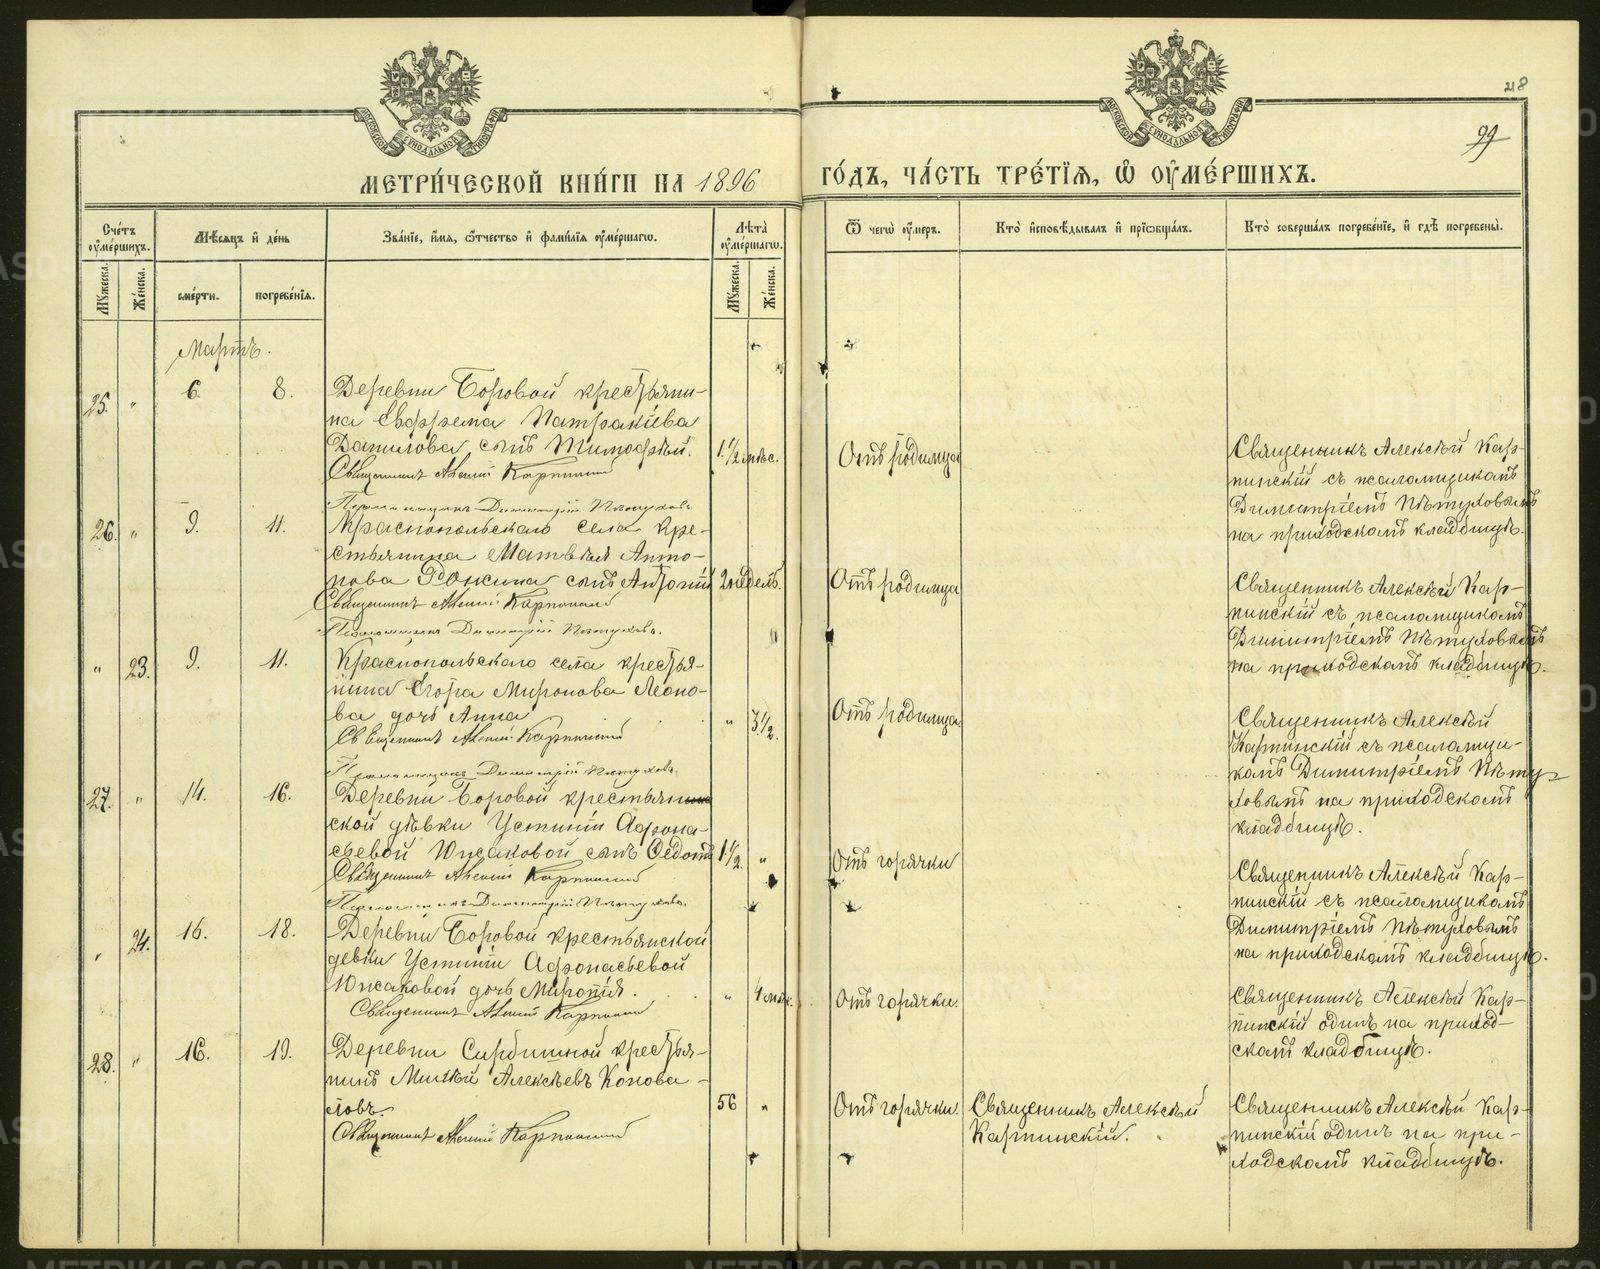 218
99
МЕТРИ́ЧЕСКОЙ КНИ́ГИ НА 1896 ГО́ДЪ, ЧА́СТЬ ТРЕ́ТЇѦ, Ѿ ОУМЕ́РШИХЪ.
Сче́тъ оумершихъ.
Мꙋжеска.
Же́нска.
Мѣсяцъ и де́нь
сме́рти.
погребе́нїѧ.
Зва́нїе, и҆мѧ, ѻ҆тчество и фами́лїѧ оуме́ршагѡ.
Лѣта̀ оуме́ршагѡ.
Мꙋжеска.
Же́нска.
Ѿ чегѡ̀ оу́меръ.
Кто̀ и҆сповѣ́дывалъ и прїѡбща́лъ.
Кто̀ соверша́лъ погребе́нїе, и гдѣ̀ погребены̀.
Мартъ.
25. " 6. 8.
Деревни Боровой крестьяни-
на Евфрема Патракіева
Данилова сынъ Тимофѣй.
1 1/2 мѣс.
Отъ родимца
Священникъ Алексѣй Карпинскій
Псаломщикъ Димитрій Пѣтуховъ
Священникъ Алексѣй Кар-
пинскій съ псаломщикомъ
Димитріемъ Пѣтуховымъ
на приходскомъ кладбищѣ.
26. " 9. 11.
Краснопольскаго села кре-
стьянина Матвѣя Анто-
нова Ронжина сынъ Антоній
2 недель.
Отъ родимца
Священникъ Алексѣй Карпинскій
Псаломщикъ Димитрій Пѣтуховъ.
Священникъ Алексѣй Кар-
пинскій съ псаломщикомъ
Димитріемъ Пѣтуховымъ
на приходскомъ кладбищѣ.
" 23. 9. 11.
Краснопольскаго села крестья-
нина Егора Миронова Леоно-
ва дочь Анна
" 3 1/2.
Отъ родимца
Священникъ Алексѣй Карпинскій
Псаломщикъ Димитрій Пѣтуховъ.
Священникъ Алексѣй
Карпинскій съ псаломщи-
комъ Димитріемъ Пѣту-
ховымъ на приходскомъ
кладбищѣ.
27. " 14. 16.
Деревни Боровой крестьян
ской дѣвки Устиніи Афона-
сьевой Юнсаковой сынъ Ѳедотъ
1 1/2 "
Отъ горячки
Священникъ Алексѣй Карпинскій
Псаломщикъ Димитрій Пѣтуховъ.
Священникъ Алексѣй Кар-
пинскій съ псаломщикомъ
Димитріемъ Пѣтуховымъ
на приходскомъ кладбищѣ.
" 24. 16. 18.
Деревни Боровой крестьянской
девки Устиніи Афонасьевой
Юнсаковой дочь
" 4
Отъ горячки.
Священникъ Алексѣй Карпинскій
Священникъ Алексѣй Кар-
пинскій одинъ на приход-
скомъ кладбищѣ.
28. " 16. 19.
Деревни крестья-
нинъ Алексѣевъ Конова-
ловъ.
56 "
Отъ горячки.
Священникъ Алексѣй
Карпинскій.
Священникъ Алексѣй Карпинскій
Священникъ Алексѣй Кар-
пинскій одинъ на при-
ходскомъ кладбищѣ.